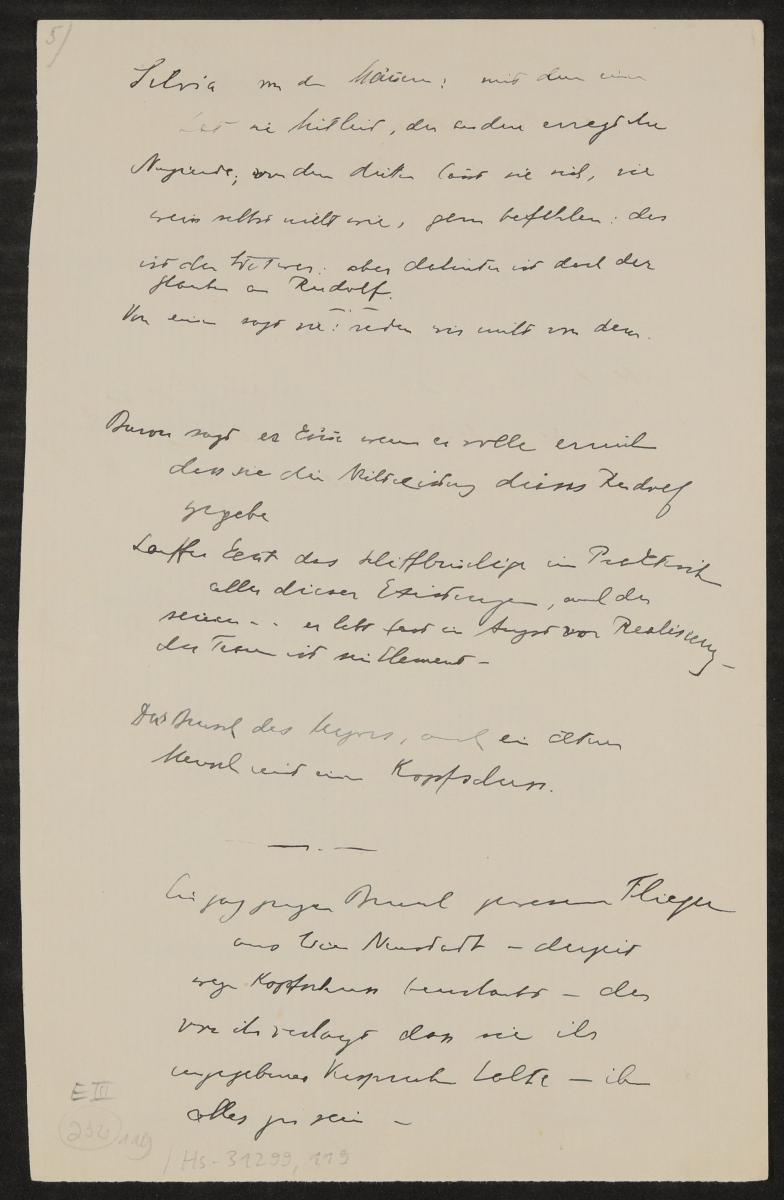 5)
Silvia von den Männern: mit dem einen
hat sie Mitleid, der andere erregt ihre
Neugierde; von dem dritten lässt sie sich, sie
weiss selbst nicht wie, gern befehlen: das
ist der: aber dahinter ist doch der
Glauben an Rudolf.
Von einem sagt sie: reden wir nicht von dem.
Baron sagt er wenn er wolle
dass sie die dieses Rudolf
gegebe
das Schiffbrüchige im
aller dieser Existenzen, auch der
seinen - . er lebt fast in Angst vor Realisierung –
der Traum ist sein Element –
Besuch des, auch ein älterer
Mensch mit einem Kopfschuss.
Ein Besuch gewesener Flieger
aus Wien Neustadt – derzeit
wegen Kopfschuss beurlaubt – der
von ihr verlangt dass sie ihr
ungegebenes Versprechen halte – ihm
alles zu sein –
E III
119
Hs-31299,119